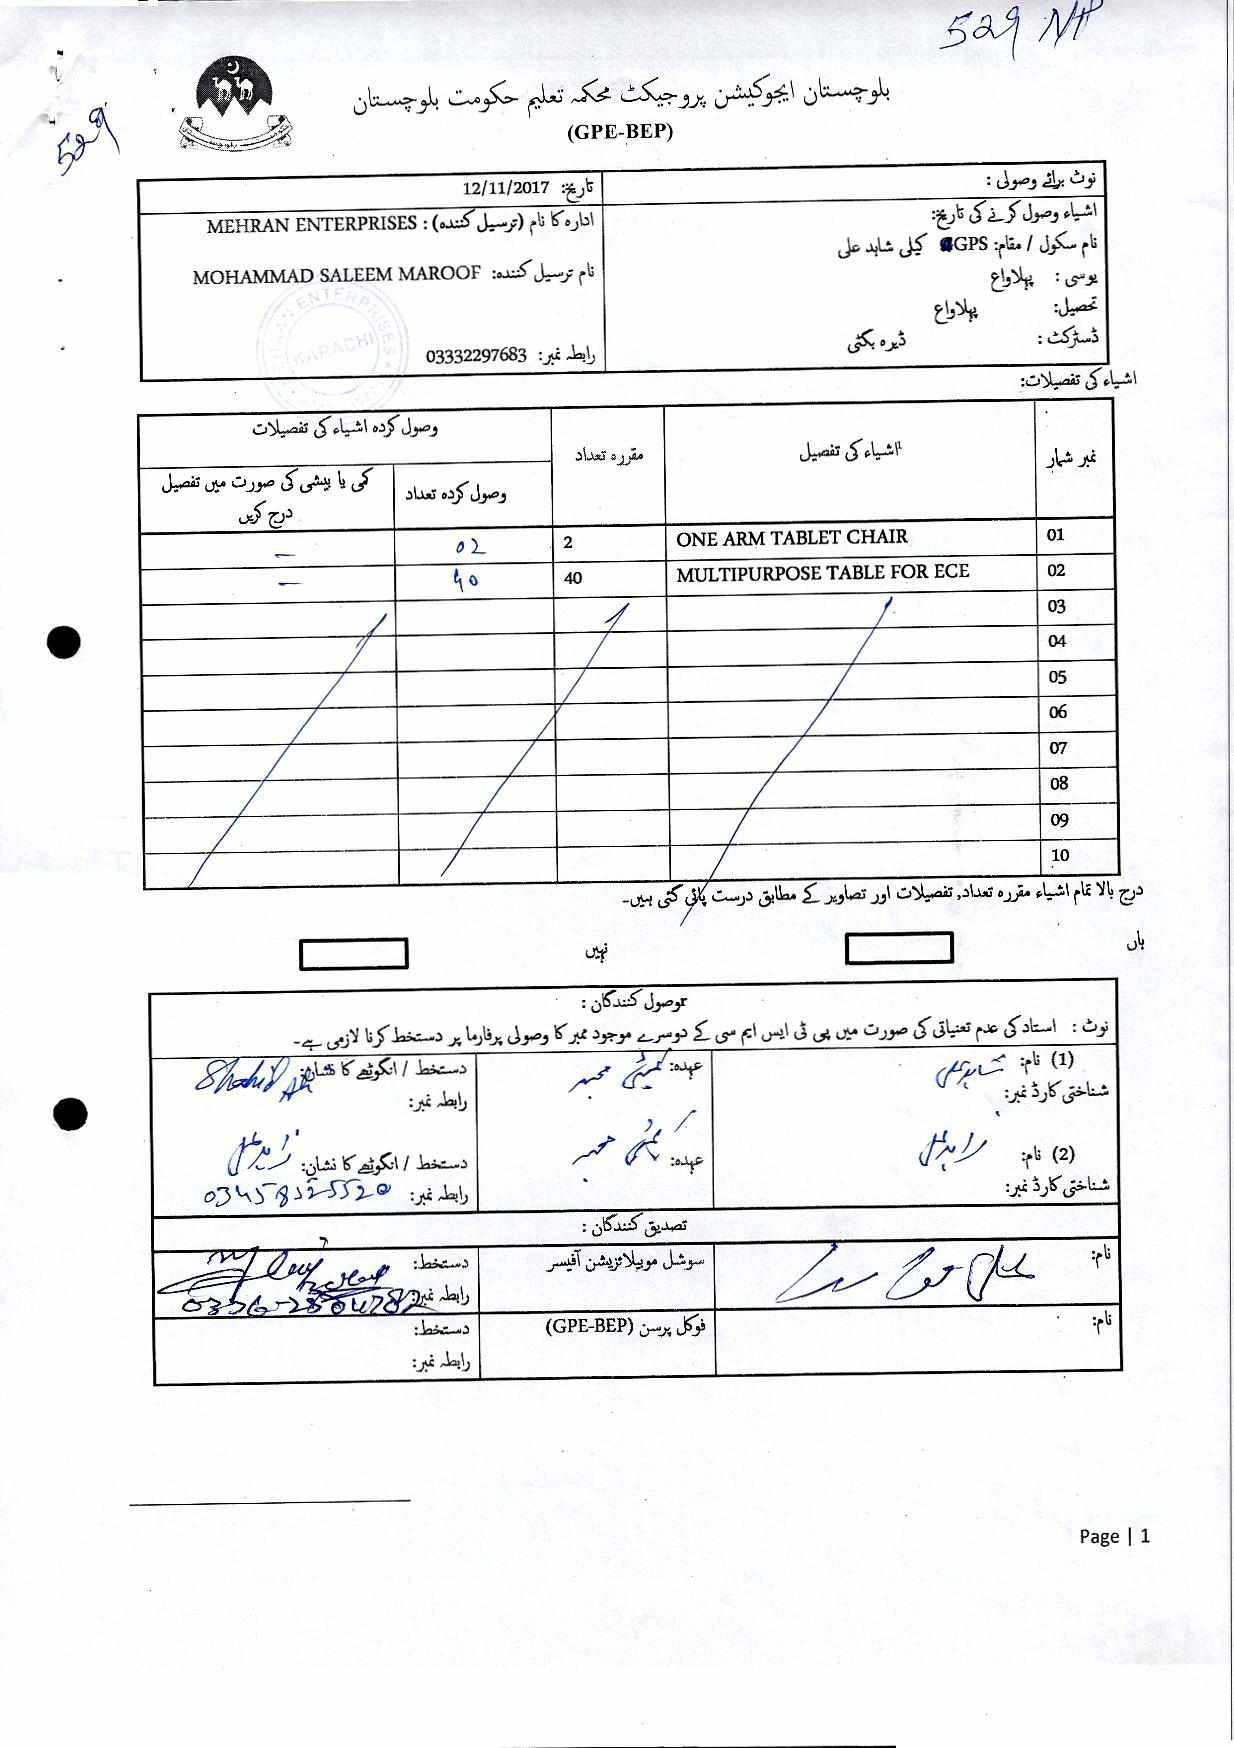 529 NP
529
بلوچستان ایجوکیشن پروجیکٹ محکمہ تعلیم حکومت بلوچستان
(GPE-BEP)
نوٹ برائے وصولی :
تاریخ: 12/11/2017
اشیاء وصول کرنے کی تاریخ:
ادارہ کا نام (ترسیل کنندہ) : MEHRAN ENTERPRISES
نام سکول / مقام: GPS کیلی شاہد علی
نام ترسیل کنندہ: MOHAMMAD SALEEM MAROOF
یوسی : پہلاواغ
تحصیل: پہلاواغ
ڈسٹرکٹ : ڈیرہ بگٹی
رابطہ نمبر: 03332297683
ENTERPRISES
KARACHI
اشیاء کی تفصیلات:
نمبر شمار
اشیاء کی تفصیل
مقررہ تعداد
وصول کردہ اشیاء کی تفصیلات
وصول کردہ تعداد
کمی یا بیشی کی صورت میں تفصیل درج کریں
01 ONE ARM TABLET CHAIR 2 02 –
02 MULTIPURPOSE TABLE FOR ECE 40 40 –
03
04
05
06
07
08
09
10
درج بالا تمام اشیاء مقررہ تعداد, تفصیلات اور تصاویر کے مطابق درست پائی گئی ہیں۔
ہاں
نہیں
وصول کنندگان :
نوٹ : استاد کی عدم تعیناتی کی صورت میں پی ٹی ایس ایم سی کے دوسرے موجود ممبر کا وصولی پرفارما پر دستخط کرنا لازمی ہے۔
(1) نام: شاہد علی
عہدہ: کمیٹی ممبر
دستخط / انگوٹھے کا نشان: Shahid Ali
شناختی کارڈ نمبر:
رابطہ نمبر:
(2) نام:
عہدہ: کمیٹی ممبر
دستخط / انگوٹھے کا نشان:
شناختی کارڈ نمبر:
رابطہ نمبر: 03458325520
تصدیق کنندگان :
نام:
سوشل موبیلائزیشن آفیسر
دستخط:
رابطہ نمبر:
نام:
فوکل پرسن (GPE-BEP)
دستخط:
رابطہ نمبر:
Page | 1